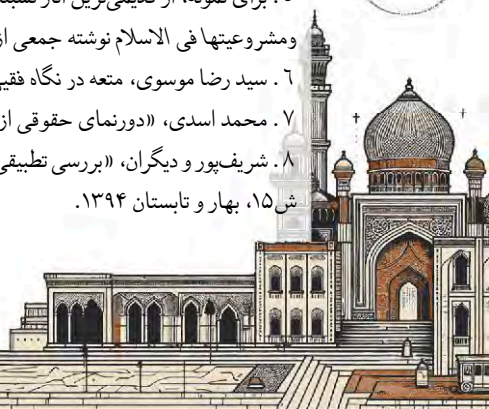 ۵. برای نمونه، از قدیمی‌ترین آثار نسبتا
ومشروعیتها فی الاسلام نوشته جمعی از
۶. سید رضا موسوی، متعه در نگاه فقیر
۷. محمد اسدی، «دورنمای حقوقی از
۸. شریف‌پور و دیگران، «بررسی تطبیقی
ش۱۵، بهار و تابستان ۱۳۹۴.